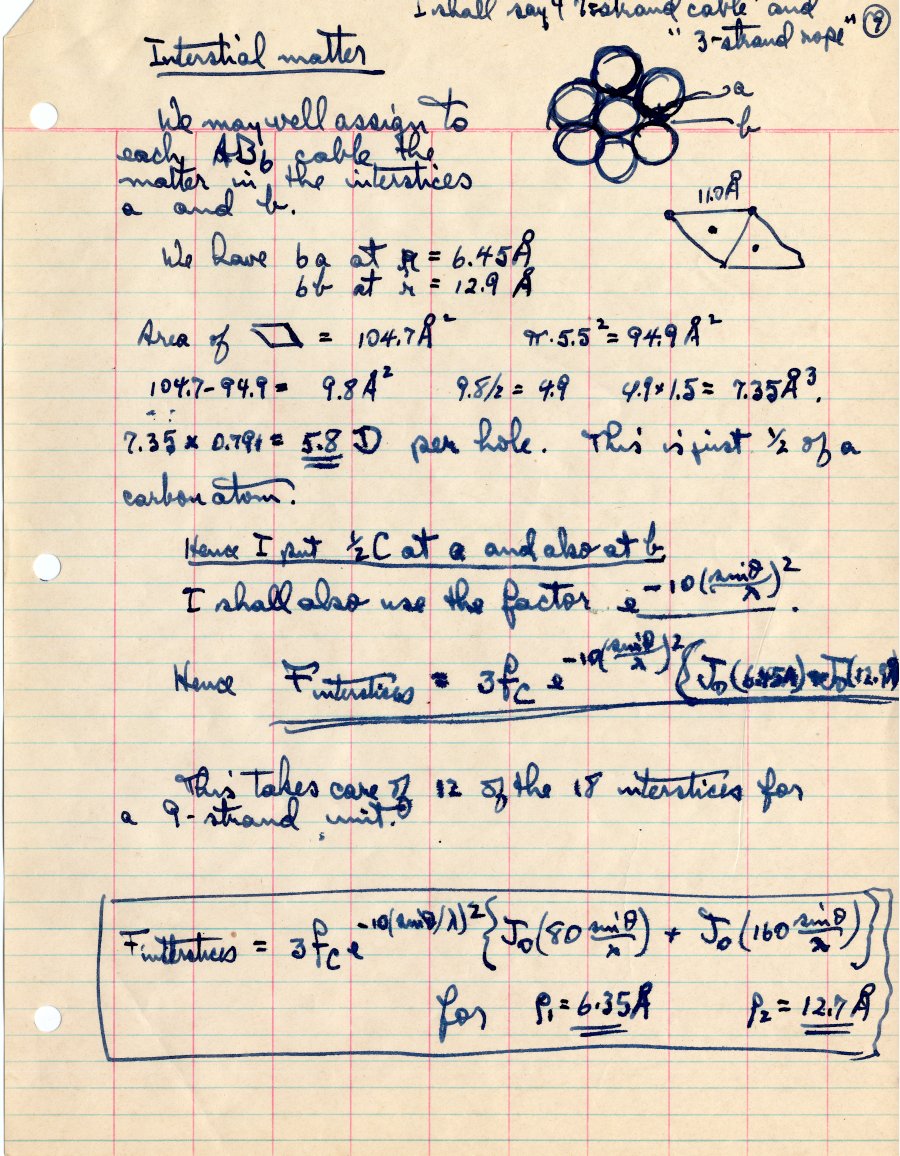 I shall say "7-strand cable" and
"3-strand rope" 9
Interstial matter
a
b
We may well assign to
each AB6 cable the
matter in the interstices
a and b.
11.0Å
We have 6a at r = 6.45Å
6b at r = 12.9 Å
Area of ▱ = 104.7Å² π·5.5² = 94.9 Å²
104.7-94.9 = 9.8Å² 9.8/2 = 4.9 4.9×1.5 = 7.35Å³.
7.35 × 0.79 = 5.8 per hole. This is just ½ of a
carbon atom.
Hence I put ½C at a and also at b
I shall also use the factor e^-10(sinθ/λ)².
Hence F interstices = 3fC e^-10(sinθ/λ)² {J0(6.45A) + J0(12.9
This takes care of 12 of the 18 interstices for
a 9-strand unit.
F interstices = 3fC e^-10(sinθ/λ)² {J0(80 sinθ/λ) + J0(160 sinθ/λ)}
for ρ1 = 6.35Å ρ2 = 12.7Å